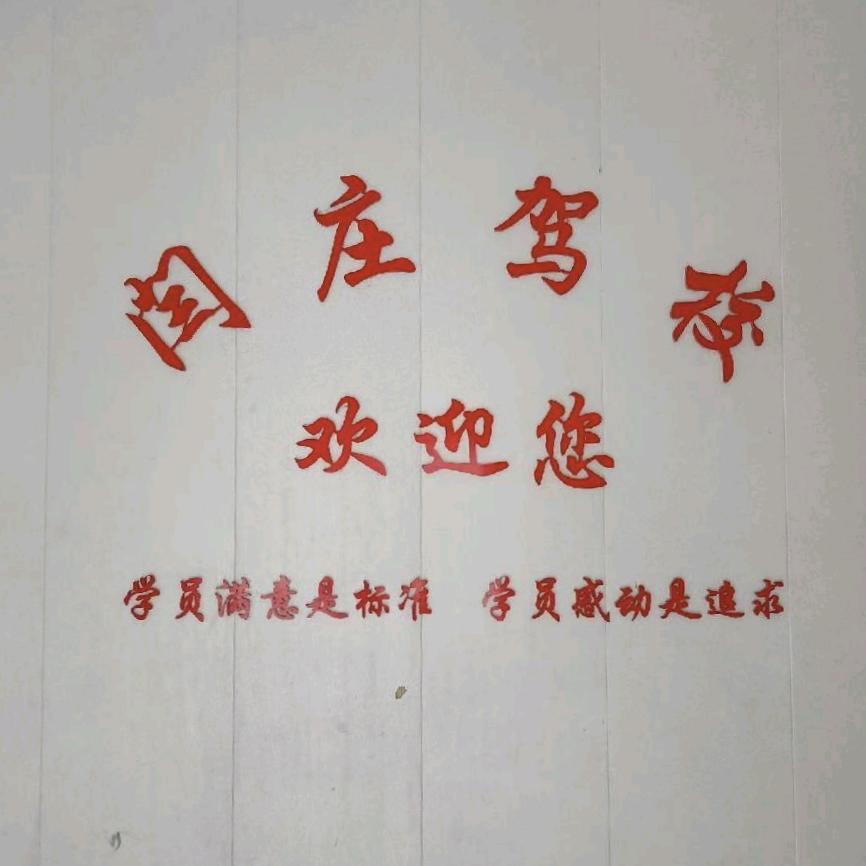 闫庄驾校
欢迎您
学员满意是标准 学员感动是追求